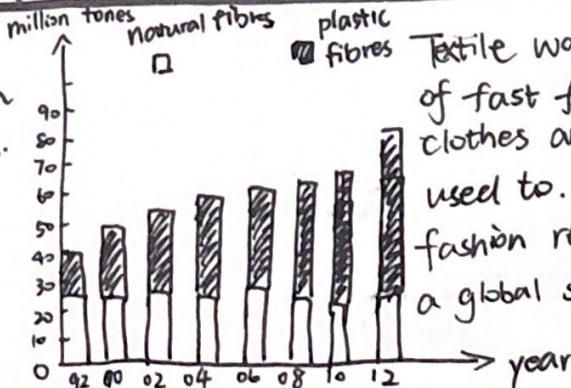 million tones
natural fibres
plastic
fibres
Textile
of fast
clothes
used to.
fashion
a global
90
80
70
60
50
40
30
20
10
0
92 00 02 04 06 08 10 12
year